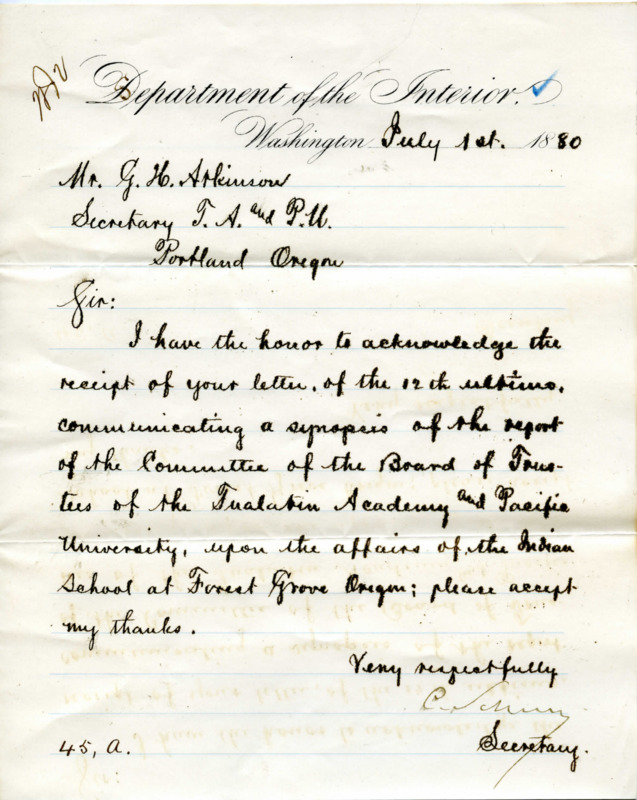 Department of the Interior,
Washington July 1st. 1880
Mr. G. H. Atkinson
Secretary T. A. and P. U.
Portland Oregon
Sir:
I have the honor to acknowledge the
receipt of your letter, of the 12th ultimo,
communicating a synopsis of the report
of the Committee of the Board of Trus-
tees of the Tualatin Academy and Pacific
University, upon the affairs of the Indian
School at Forest Grove Oregon; please accept
my thanks.
Very respectfully
C. Schurz
Secretary.
45, A.